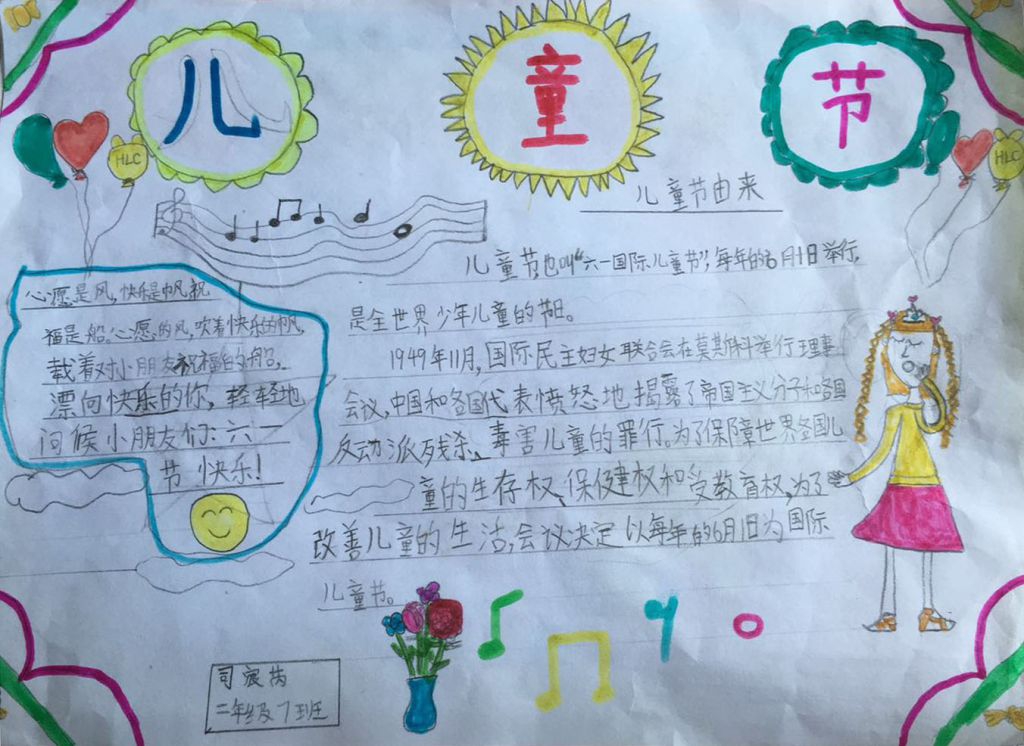 儿 童 节
HLC
HLC
儿童节由来
儿童节,也叫“六一国际儿童节”,每年的6月1日举行,
是全世界少年儿童的节日。
1949年11月,国际民主妇女联合会在莫斯科举行理事
会议,中国和各国代表愤怒地揭露了帝国主义分子和各国
反动派残杀、毒害儿童的罪行。为了保障世界各国儿
童的生存权、保健权和受教育权,为了
改善儿童的生活,会议决定以每年的6月1日为国际
儿童节。
心愿是风,快乐是帆,祝
福是船。心愿的风,吹着快乐的帆,
载着对小朋友祝福的船,
漂向快乐的你,轻轻地
问候小朋友们:六一
节快乐!
司
二年级7班